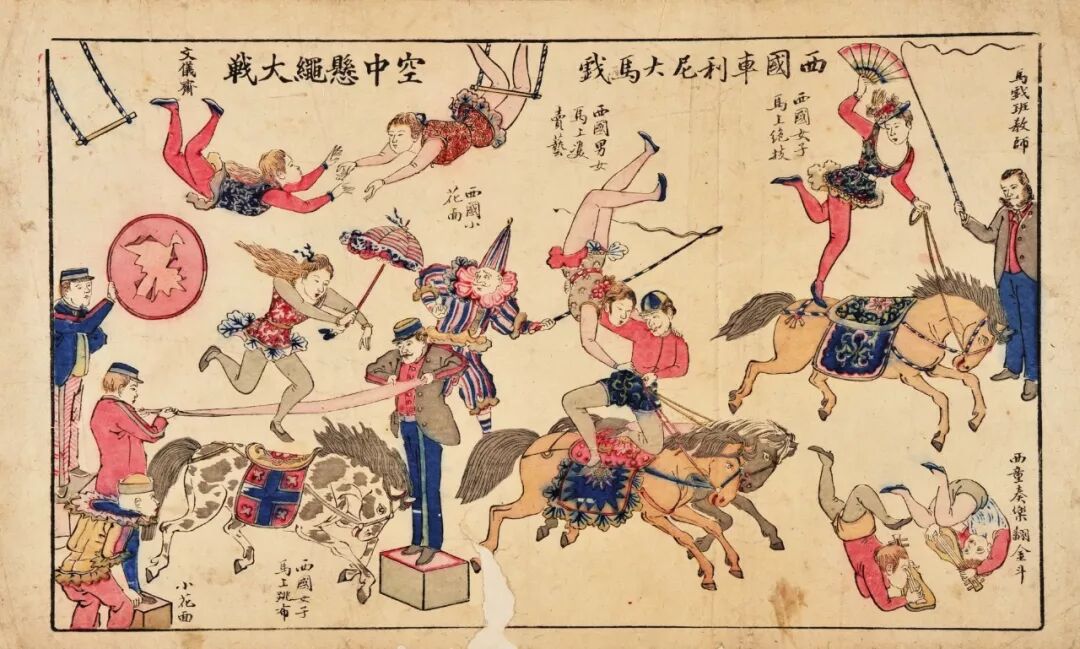 西國車利尼大馬戱
空中懸繩大戦
文儀齋
馬戱班教師
西國女子
馬上絕技
西國男女
馬上
賣藝
西國小
花面
西童奏樂翻金斗
西國女子
馬上跳布
小花面